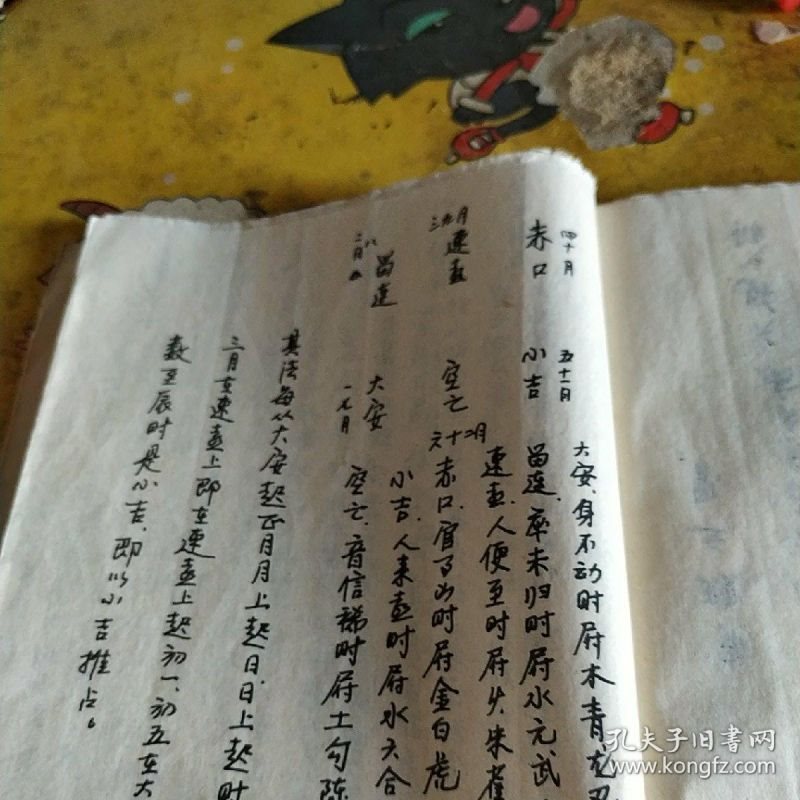 四十月
赤口
三九月
速喜
二八月
留连
五十一月
小吉
空亡
六十二月
大安
一七月
大安、身不动时属木青龙
留连、卒未归时属水元武
速喜、人便至时属火朱雀
赤口、官事凶时属金白虎
小吉、人来喜时属水六合
空亡、音信稀时属土勾陈
其法每从大安起正月月上起日、日上起时
三月在速喜上即在速喜上起初一、初五在大
数至辰时是小吉、即以小吉推占。
孔夫子旧书网
www.kongfz.com